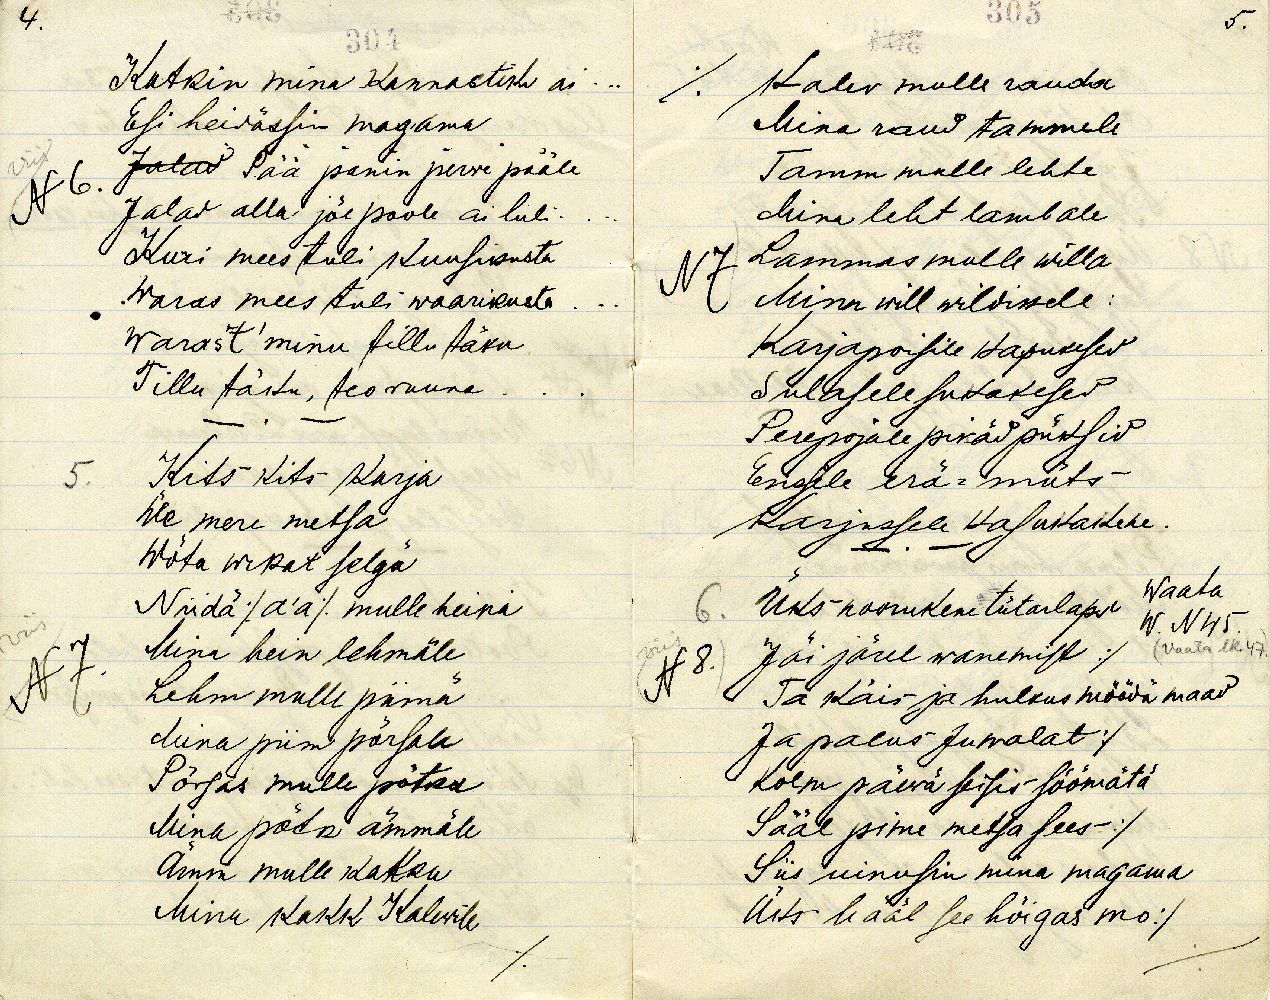 4.
304
Katkin mina kannactiku ai . ..
Esi heidässin magama
viis
N 6. Jalad Pää panin perwe pääle
Jalad alla jõe poole ai luli. . ..
Kuri mees tuli kuusikusta
Waras mees tuli waarikusta . . .
Warast' minu tillu täku
Tillu täku, teo ruuna . . . .
— . —
5. Kits kits karja
Üle mere metsa
Wõta wikat selgä
Niidä :/ a'a :/. mulle heinä
viis
N 7. Mina hein lehmäle
Lehm mulle piimä
Mina piim põrsale
Põrsas mulle põtka
Mina põtk ämmäle
Ämm mulle kakku
Mina kakk Kalewile
./.
305
5.
./. Kalev mulle rauda
Mina raud tammele
Tamm mulle lehte
Mina leht lambale
N 7 Lammas mulle willa
Mina will wildissele :
Karjapoisile kapukesed
Sulasele sukakesed
Perepojale pikäd püksid
Engile erä = müts
Karjussele kasukakene.
— . —
6. Üks noorukene tütarlaps
Waata
W. N 45.
(Vaata lk. 47.)
viis
N 8. Jäi järel wanemist :/
Ta käis ja hulkus möödä maad
Ja palus Jumalat :/
Kolm päewä seisis söömätä
Sääl pime metsa sees :/
Siis uinusin mina magama
Üks hääl see hõigas mo :/
./.